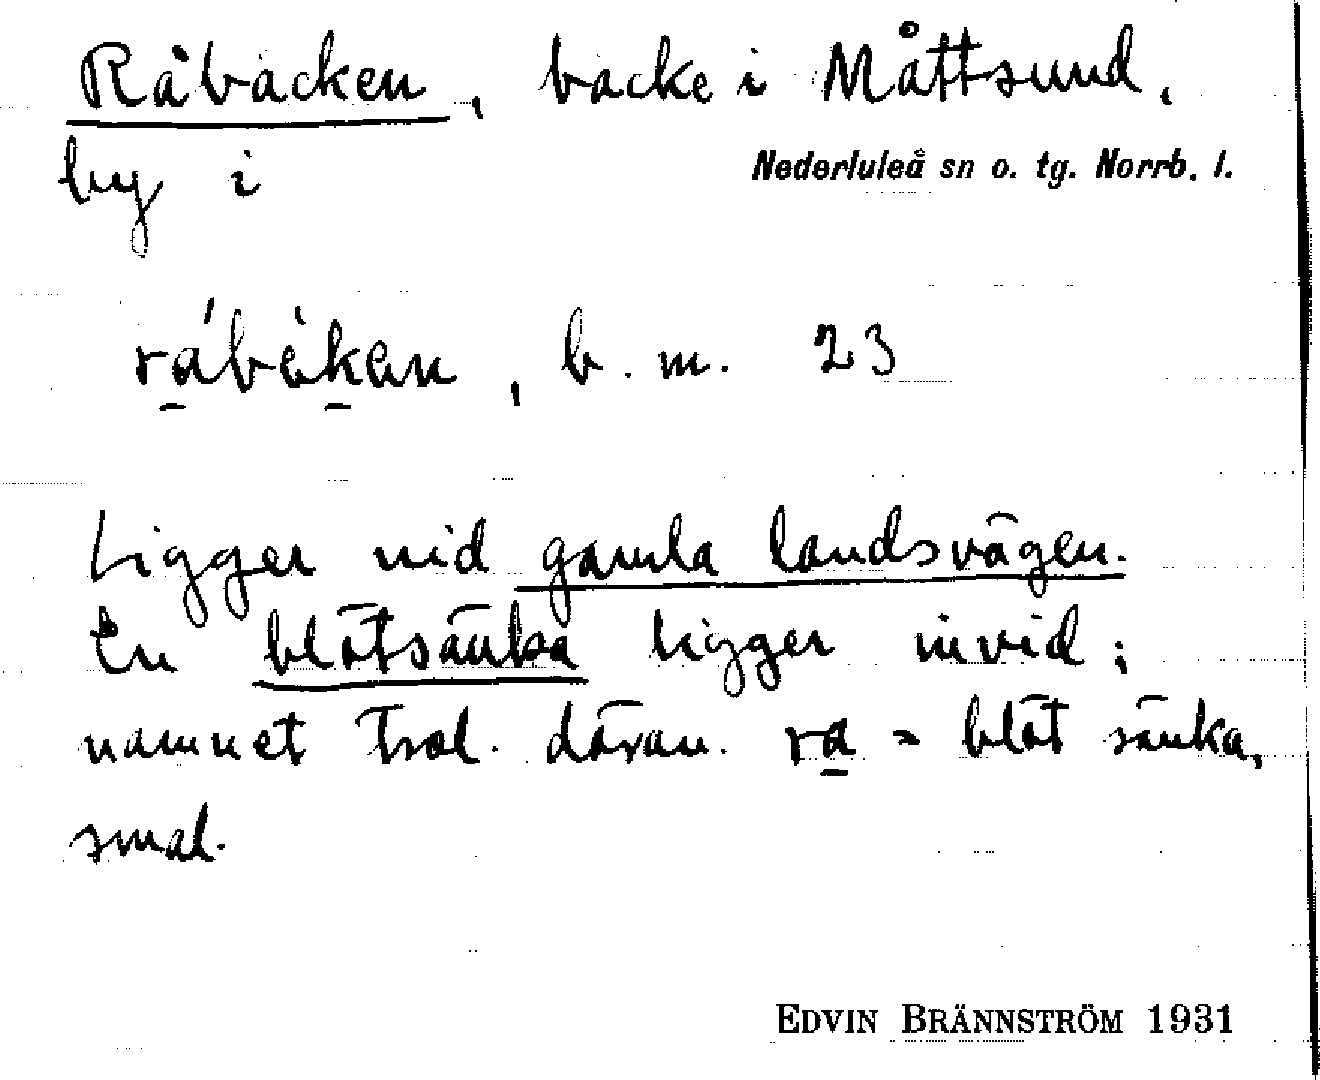 Råbacken, backe i Måttsund,
by i Nederluleå sn o. tg. Norrb. l.
rábèkan, b. m. 23
Ligger vid gamla landsvägen.
En blötsänka ligger invid;
namnet trol. därav. ra = blöt sänka,
smal.
EDVIN BRÄNNSTRÖM 1931